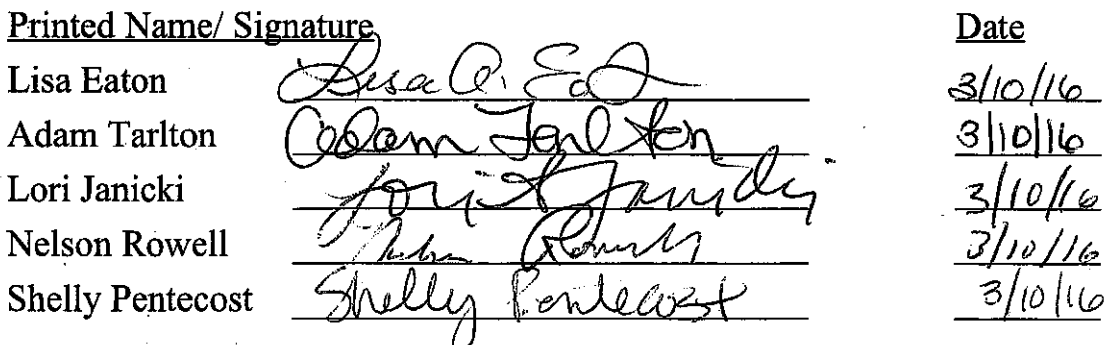 Printed Name/ Signature Date
Lisa Eaton Lisa A. Eat 3/10/16
Adam Tarlton Adam Tarlton 3/10/16
Lori Janicki Lori A Janicki 3/10/16
Nelson Rowell Nelson Rowell 3/10/16
Shelly Pentecost Shelly Pentecost 3/10/16